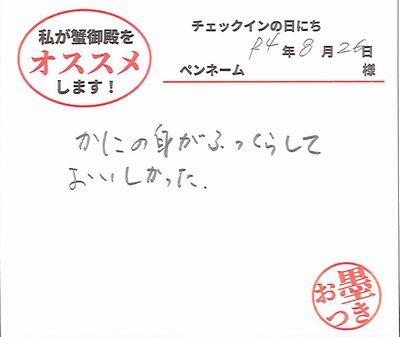 私が蟹御殿を
オススメ
します！
チェックインの日にち
R4年8月26日
ペンネーム 様
かにの身がふっくらして
おいしかった.
お墨つき